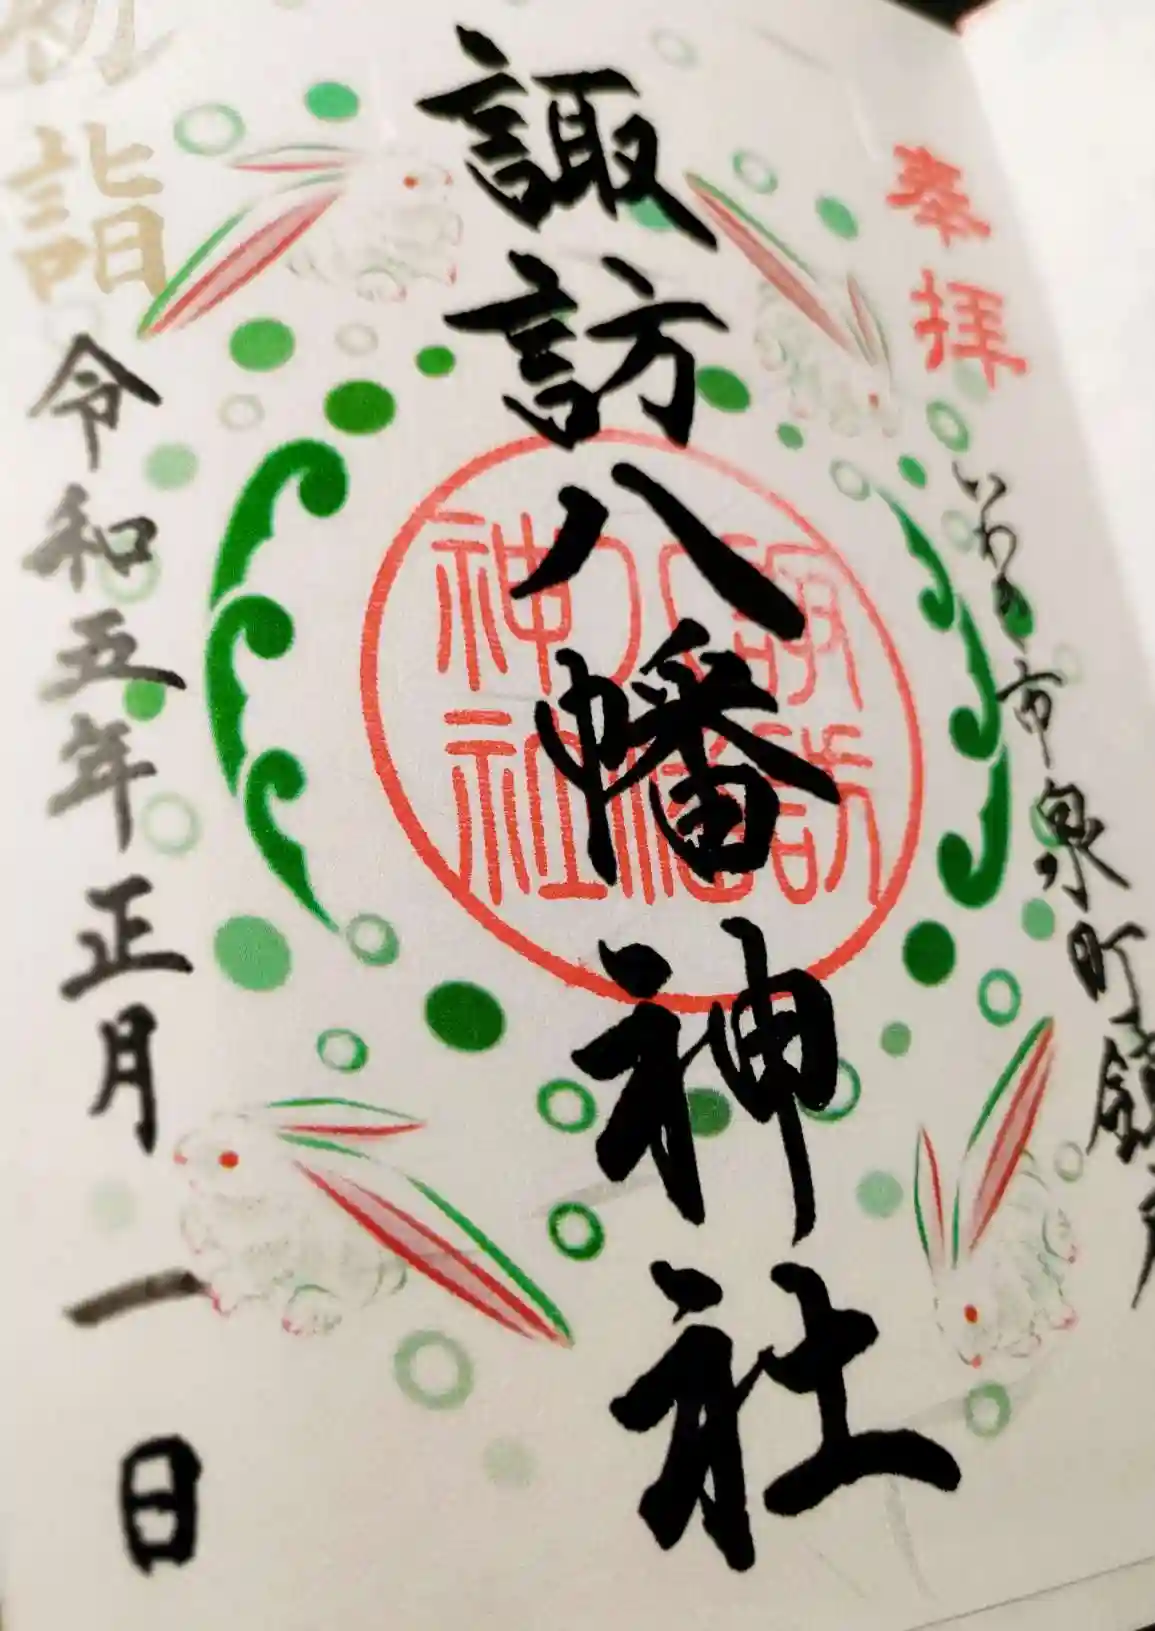 奉拝
いわき市泉町
諏訪八幡神社
諏訪八幡神社
初詣
令和五年正月一日